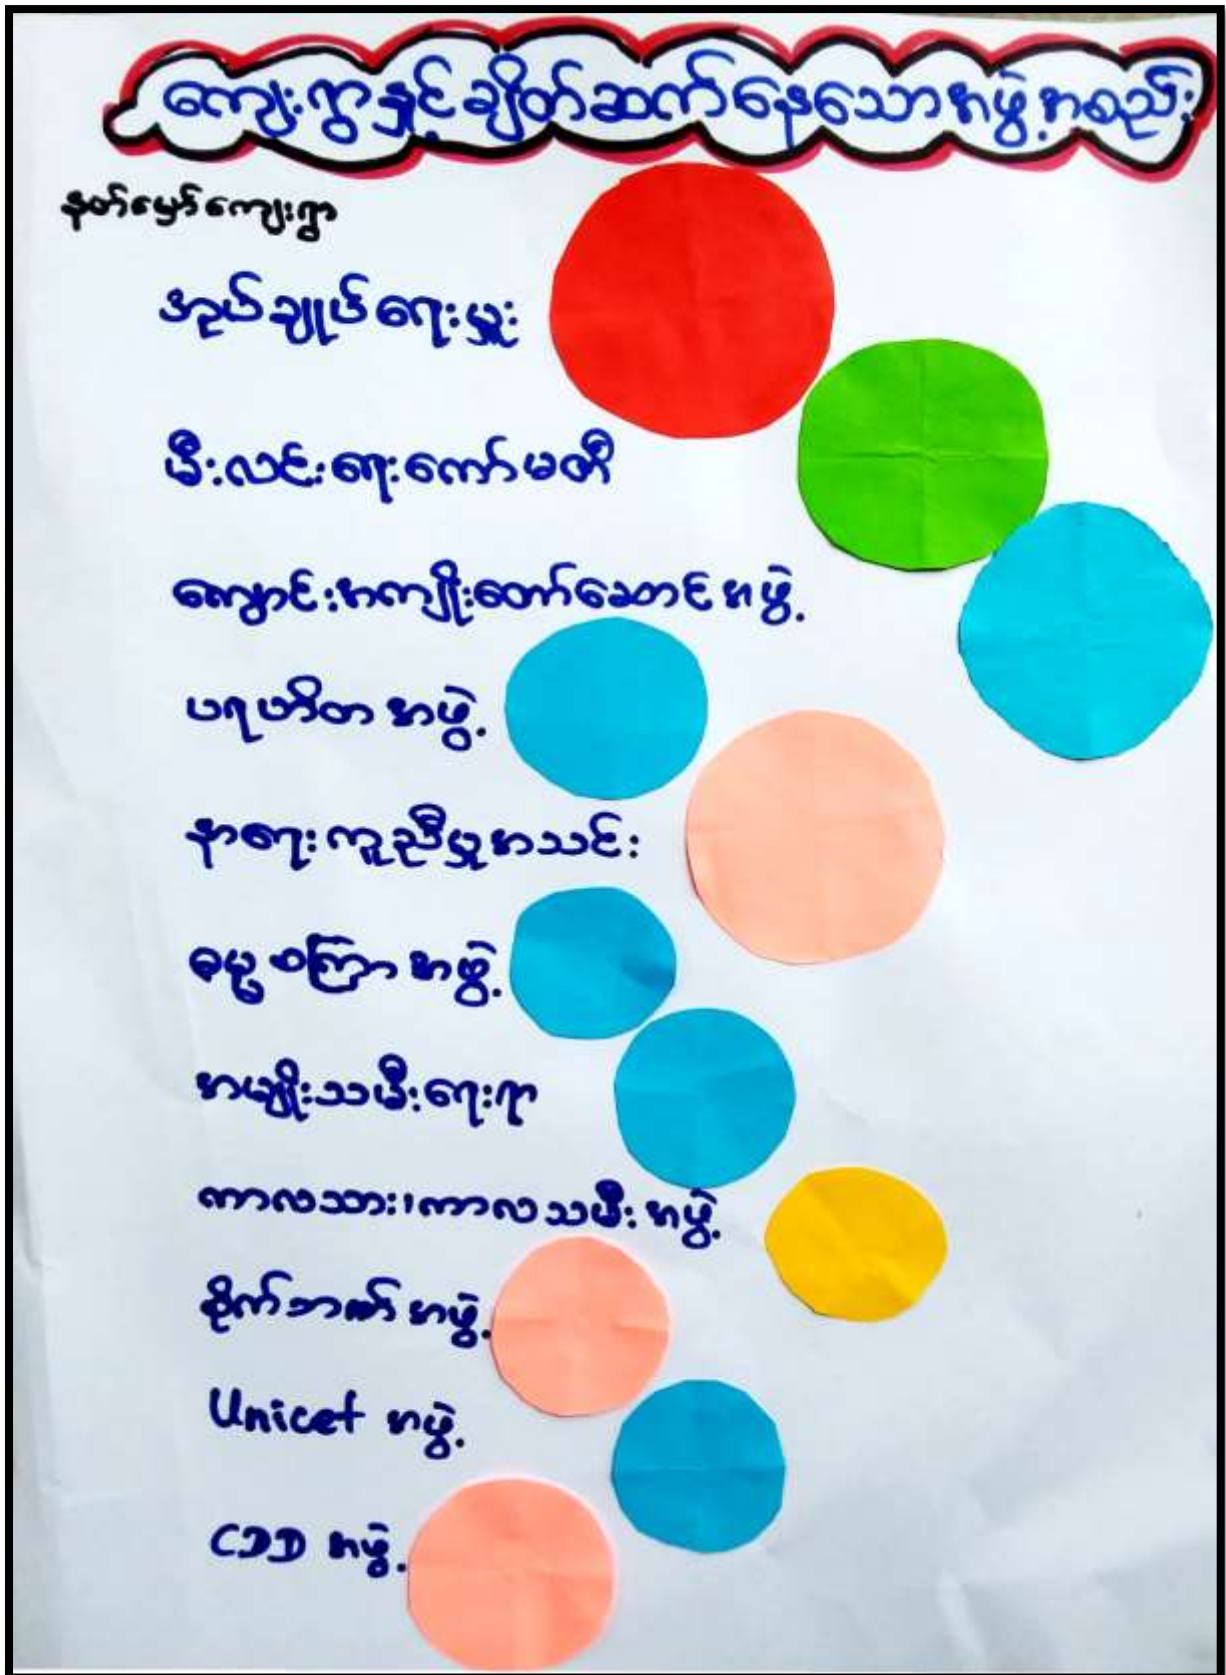 ကျေးရွာနှင့်ချိတ်ဆက်နေသောအဖွဲ့အစည်း
နတ်မှော်ကျေးရွာ
အုပ်ချုပ်ရေးမှူး
မီးလင်းရေးကော်မတီ
ကျောင်းအကျိုးတော်ဆောင်အဖွဲ့
ပရဟိတအဖွဲ့
နာရေးကူညီမှုအသင်း
ဓမ္မစကြာအဖွဲ့
အမျိုးသမီးရေးရာ
ကာလသား၊ကာလသမီးအဖွဲ့
စိုက်ဘဏ်အဖွဲ့
Unicef အဖွဲ့
CDD အဖွဲ့